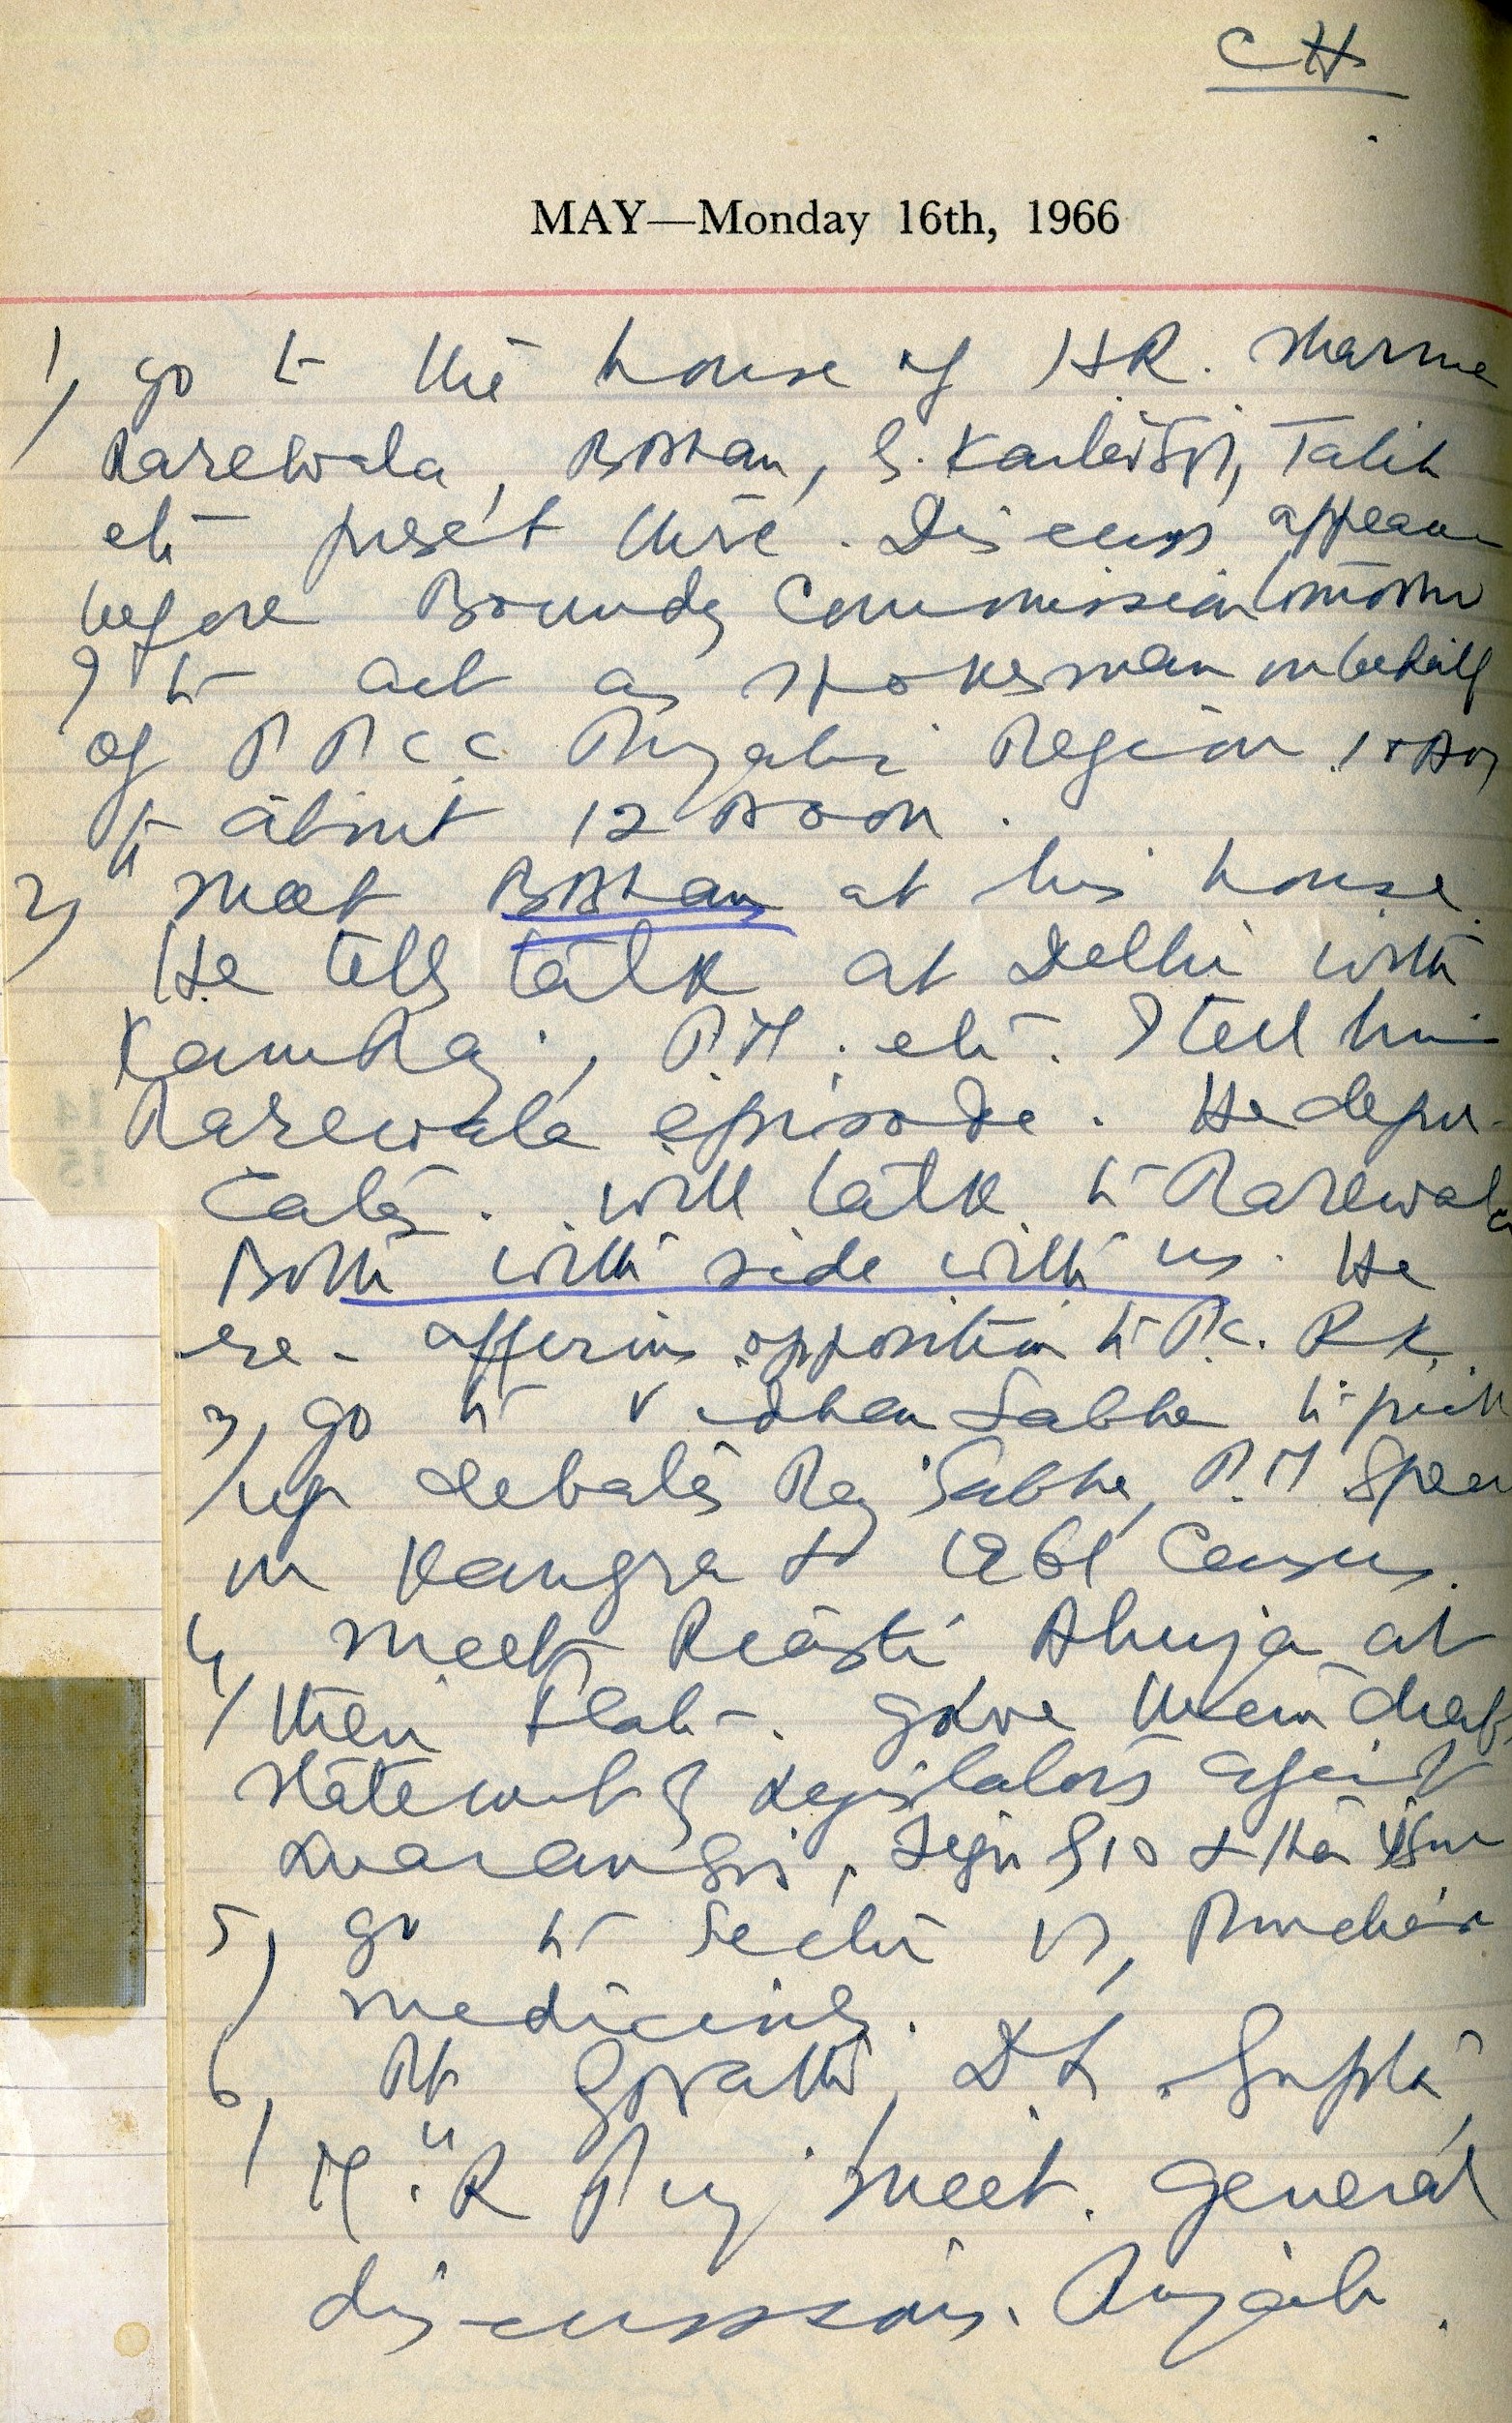 CH
MAY—Monday 16th, 1966
1) go to the house of HR. Sharma
Rarewala, , S. , Talib
etc present there. Discuss appear
before Boundry Commission tomorrow
I to act as spokesman on behalf
of PPCC Punjabi Region. 10
to about 12 Noon.
2) meet at his house.
He tells talk at Delhi with
KamRaj, P.M. etc. I tell him
Rarewala episode. He depre-
cates. will talk to Rarewala
Both will side with us. He
re-affirms opposition to P.C. R.K.
3) go to Vidhan Sabha to pick
up debates Raj Sabha, P.M Speech
on Kangra & 1961 Census.
4) meet Ahuja at
their Flat. gave them draft
statement of Legislators against
, sign &
5) go to Sector 17, Purchase
medicines.
6) At , D.L. Gupta,
M.R Puri meet. general
discussions. Punjab.